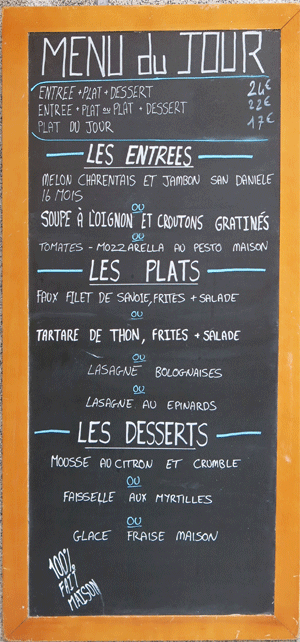 MENU du JOUR
ENTREE + PLAT + DESSERT 24€
ENTREE + PLAT ou PLAT + DESSERT 22€
PLAT DU JOUR 17€
LES ENTREES
MELON CHARENTAIS ET JAMBON SAN DANIELE
16 MOIS
OU
SOUPE À L'OIGNON ET CROUTONS GRATINÉS
OU
TOMATES - MOZZARELLA AU PESTO MAISON
LES PLATS
FAUX FILET DE SAVOIE, FRITES + SALADE
OU
TARTARE DE THON, FRITES + SALADE
OU
LASAGNE BOLOGNAISES
OU
LASAGNE AU EPINARDS
LES DESSERTS
MOUSSE AU CITRON ET CRUMBLE
OU
FAISSELLE AUX MYRTILLES
OU
GLACE FRAISE MAISON
100%
FAIT
MAISON